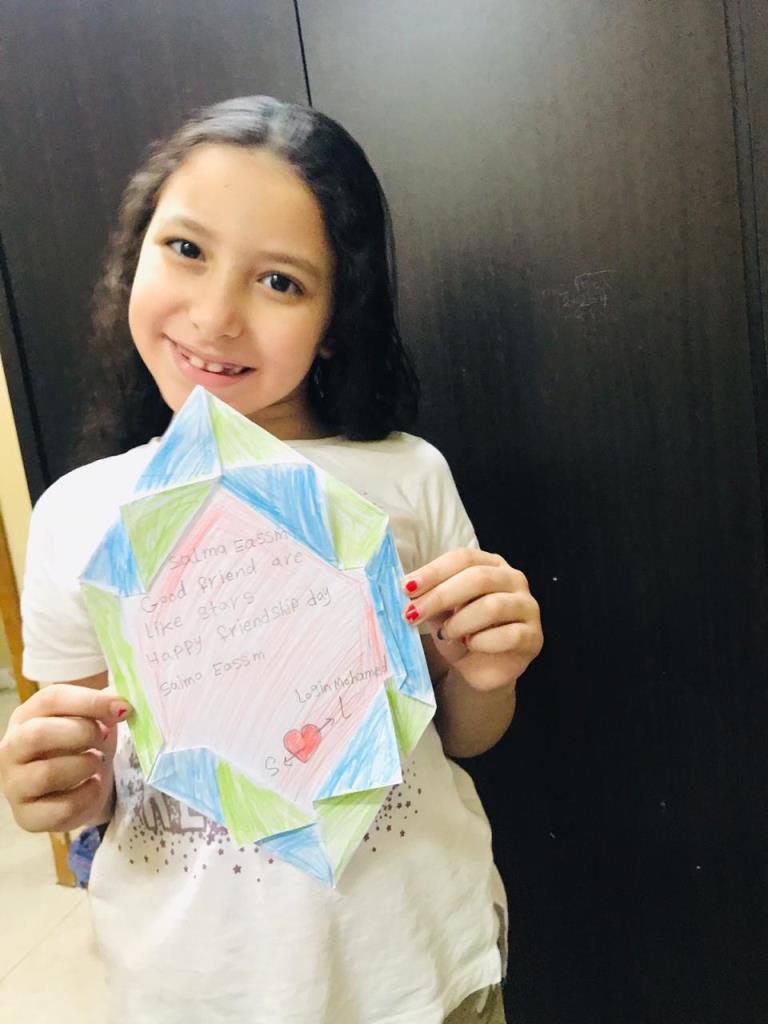 Salma Eassm
Good friend are
Like stars
Happy friendship day
Salma Eassm
Login Mohamed
L
S